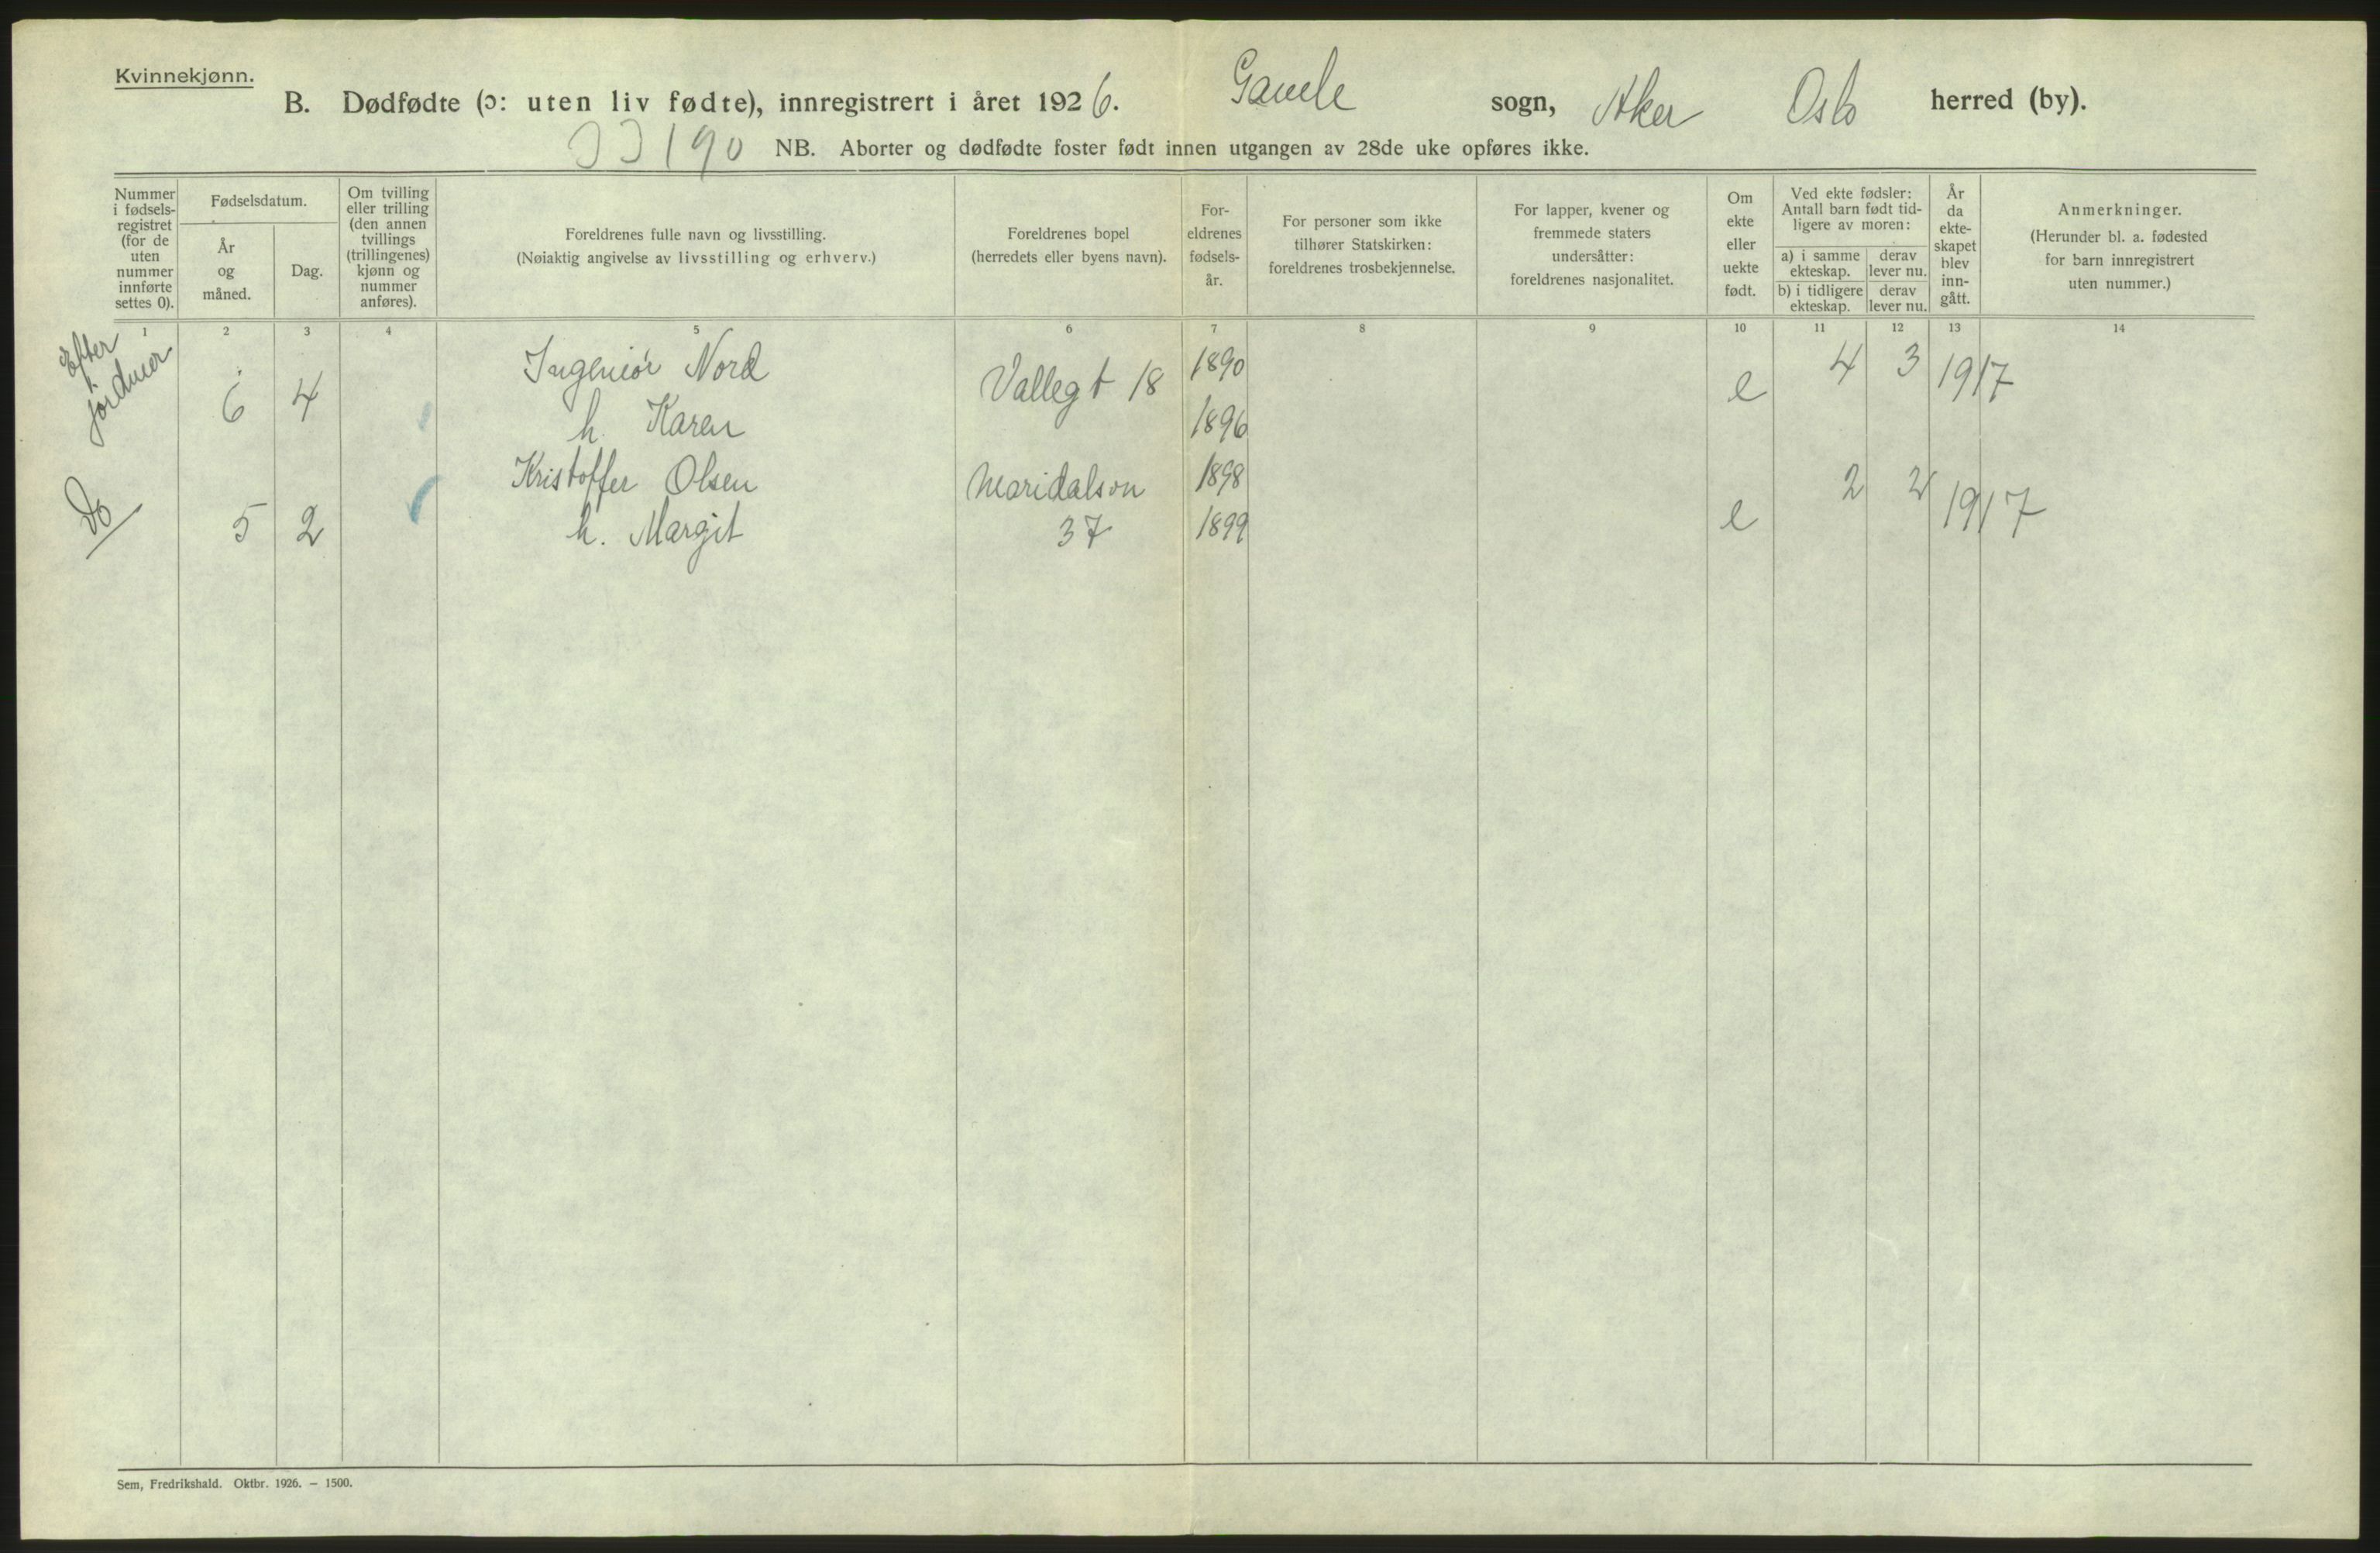 Kvinnekjønn.
B. Dødfødte (ɔ: uten liv fødte), innregistrert i året 1926. Gamle sogn, Aker Oslo herred (by).
190 NB. Aborter og dødfødte foster født innen utgangen av 28de uke opføres ikke.
Nummer
i fødsels-
registret
(for de
uten
nummer
innførte
settes 0).
Fødselsdatum.
År
og
måned.
Dag.
Om tvilling
eller trilling
(den annen
tvillings
(trillingenes)
kjønn og
nummer
anføres).
Foreldrenes fulle navn og livsstilling.
(Nøiaktig angivelse av livsstilling og erhverv.)
Foreldrenes bopel
(herredets eller byens navn).
For-
eldrenes
fødsels-
år.
For personer som ikke
tilhører Statskirken:
foreldrenes trosbekjennelse.
For lapper, kvener og
fremmede staters
undersåtter:
foreldrenes nasjonalitet.
Om
ekte
eller
uekte
født.
Ved ekte fødsler:
Antall barn født tid-
ligere av moren:
a) i samme
ekteskap.
derav
lever nu.
b) i tidligere
ekteskap.
derav
lever nu.
År
da
ekte-
skapet
blev
inn-
gått.
Anmerkninger.
(Herunder bl. a. fødested
for barn innregistrert
uten nummer.)
1 2 3 4 5 6 7 8 9 10 11 12 13 14
Efter
jordmor
6 4
Ingeniør Nord
h. Karen
Vallegt 18
1890
1896
e
4 3 1917
Do
5 2
Kristoffer Olsen
h. Margit
Maridalsvn
37
1898
1899
e
2 2 1917
Sem, Fredrikshald. Oktbr. 1926. — 1500.